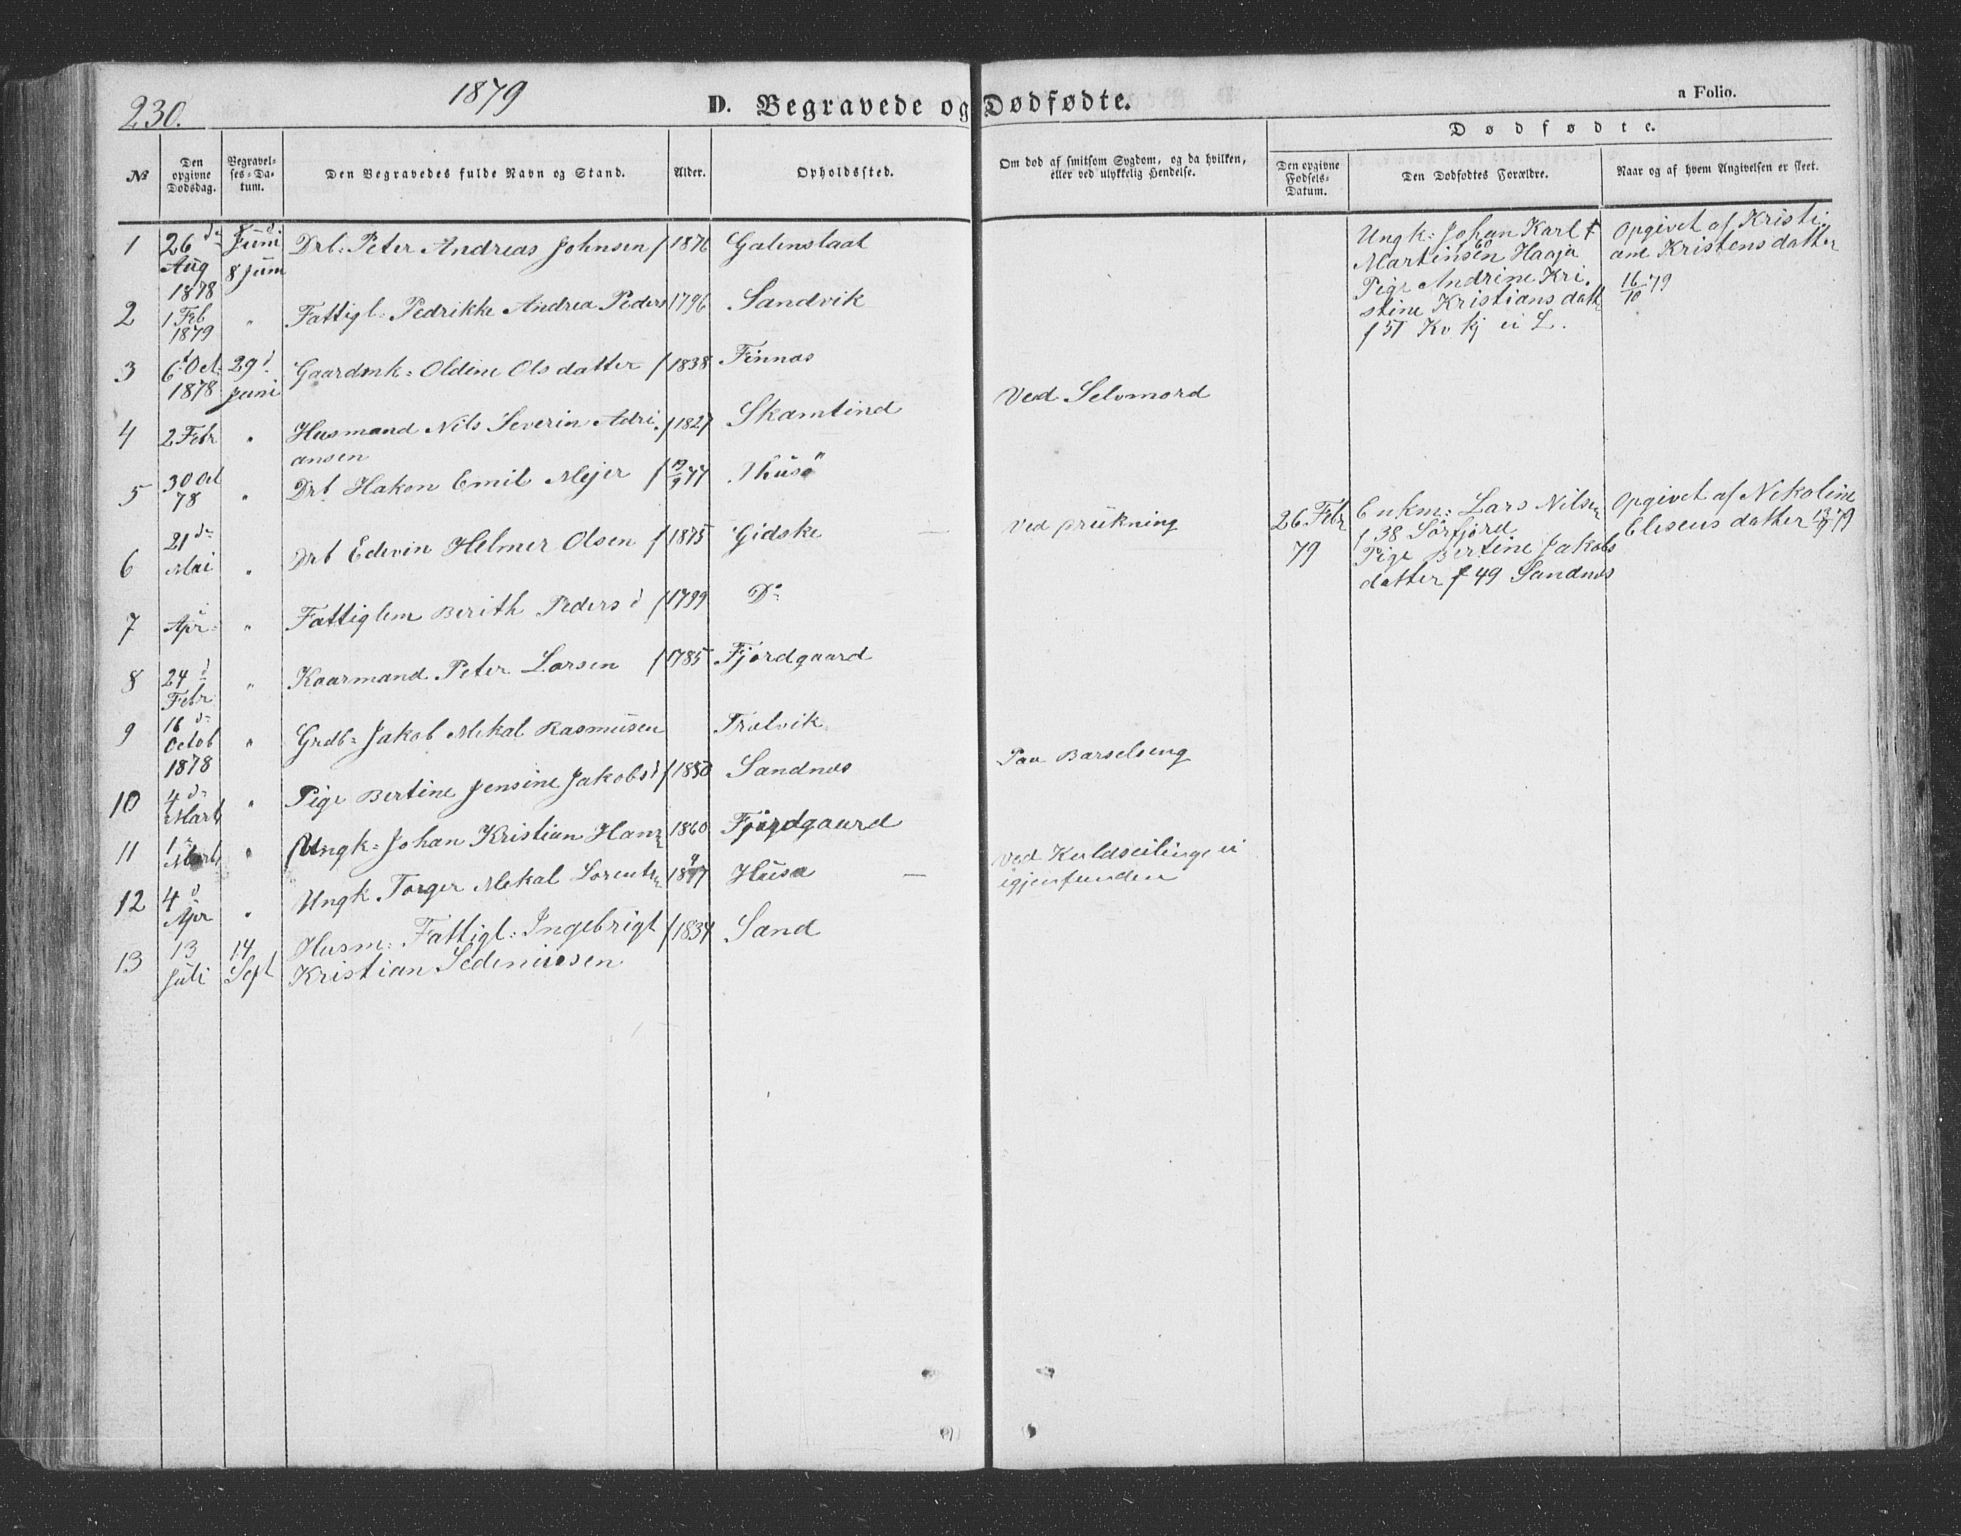 230.
1879
D. Begravede og Dødfødte.
a Folio.
Dødfødte.
No
Den opgivne Dødsdag.
Begravelses-Datum.
Den Begravedes fulde Navn og Stand.
Alder.
Opholdssted.
Om død af smitsom Sygdom, og da hvilken, eller ved ulykkelig Hendelse.
Den opgivne Fødsels-Datum.
Den Dødfødtes Forældre.
Naar og af hvem Angivelsen er skeet.
1 26 Aug 1878 8 Juni Drb: Peter Andreas Johnsen f 1876
2 1 Feb 1879 " Fattigl: Pedrikke Andrea Peders 1796 Sandvik
3 6 Oct. 1878 29 Juni Gaardmk: Oldine Olsdatter f 1838 Finnæs
4 2 Febr " Husmand Nils Severin Adri
ansen f 1827 Skamtind Ved Selvmord
5 30 Oct 78 " Drb Hakon Emil Mejer f 77
6 21 Mai " Drb Edevin Helmer Olsen f 1875 Gidske Ved Drukning
7 Apr " Fattiglem Berith Peders d f 1799 Do
8 24 Febr " Kaarmand Peter Larsen f 1785 Fjordgaard
9 16 Octob 1878 " Grdb: Jakob Mekal Rasmusen Trolvik
10 4 Marts " Pige Bertine Jensine Jakobs d f 1850 Sandnæs Paa Barselseng
11 1 Marts " Ungk: Johan Kristian Hans 1860 Fjordgaard
12 4 Apr " Ungk Torger Mekal Lorents Husø Ved Kuldseiling ei
igjenfunden
13 13 Juli 14 Sept Husm: Fattigl: Ingebrigt f 1834 Sand
Kristian Sedeniussen
Ungk: Johan Karl f
60
Martinsen Haaja
Pige Andrine Kri
stine Kristiansdatt
f 51 Kv kj ei L.
Opgivet af Kristi
ane Kristensdatter
16/10 79
26 Febr
79
Enkm: Lars Nilsen
f 38 Sørfjord
Pige Bertine Jakobs
datter f 49 Sandnæs
Opgivet af Nekoline
Eliseusdatter